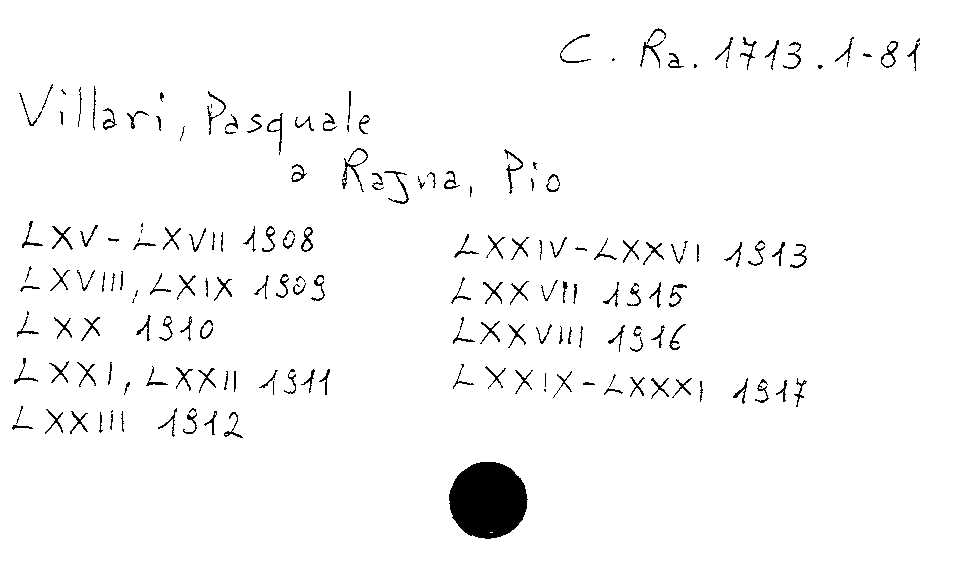 C. Ra. 1713.1-81
Villari, Pasquale
a Rajna, Pio
LXV-LXVII 1908
LXVIII, LXIX 1909
LXX 1910
LXXI, LXXII 1911
LXXIII 1912
LXXIV-LXXVI 1913
LXXVII 1915
LXXVIII 1916
LXXIX-LXXXI 1917